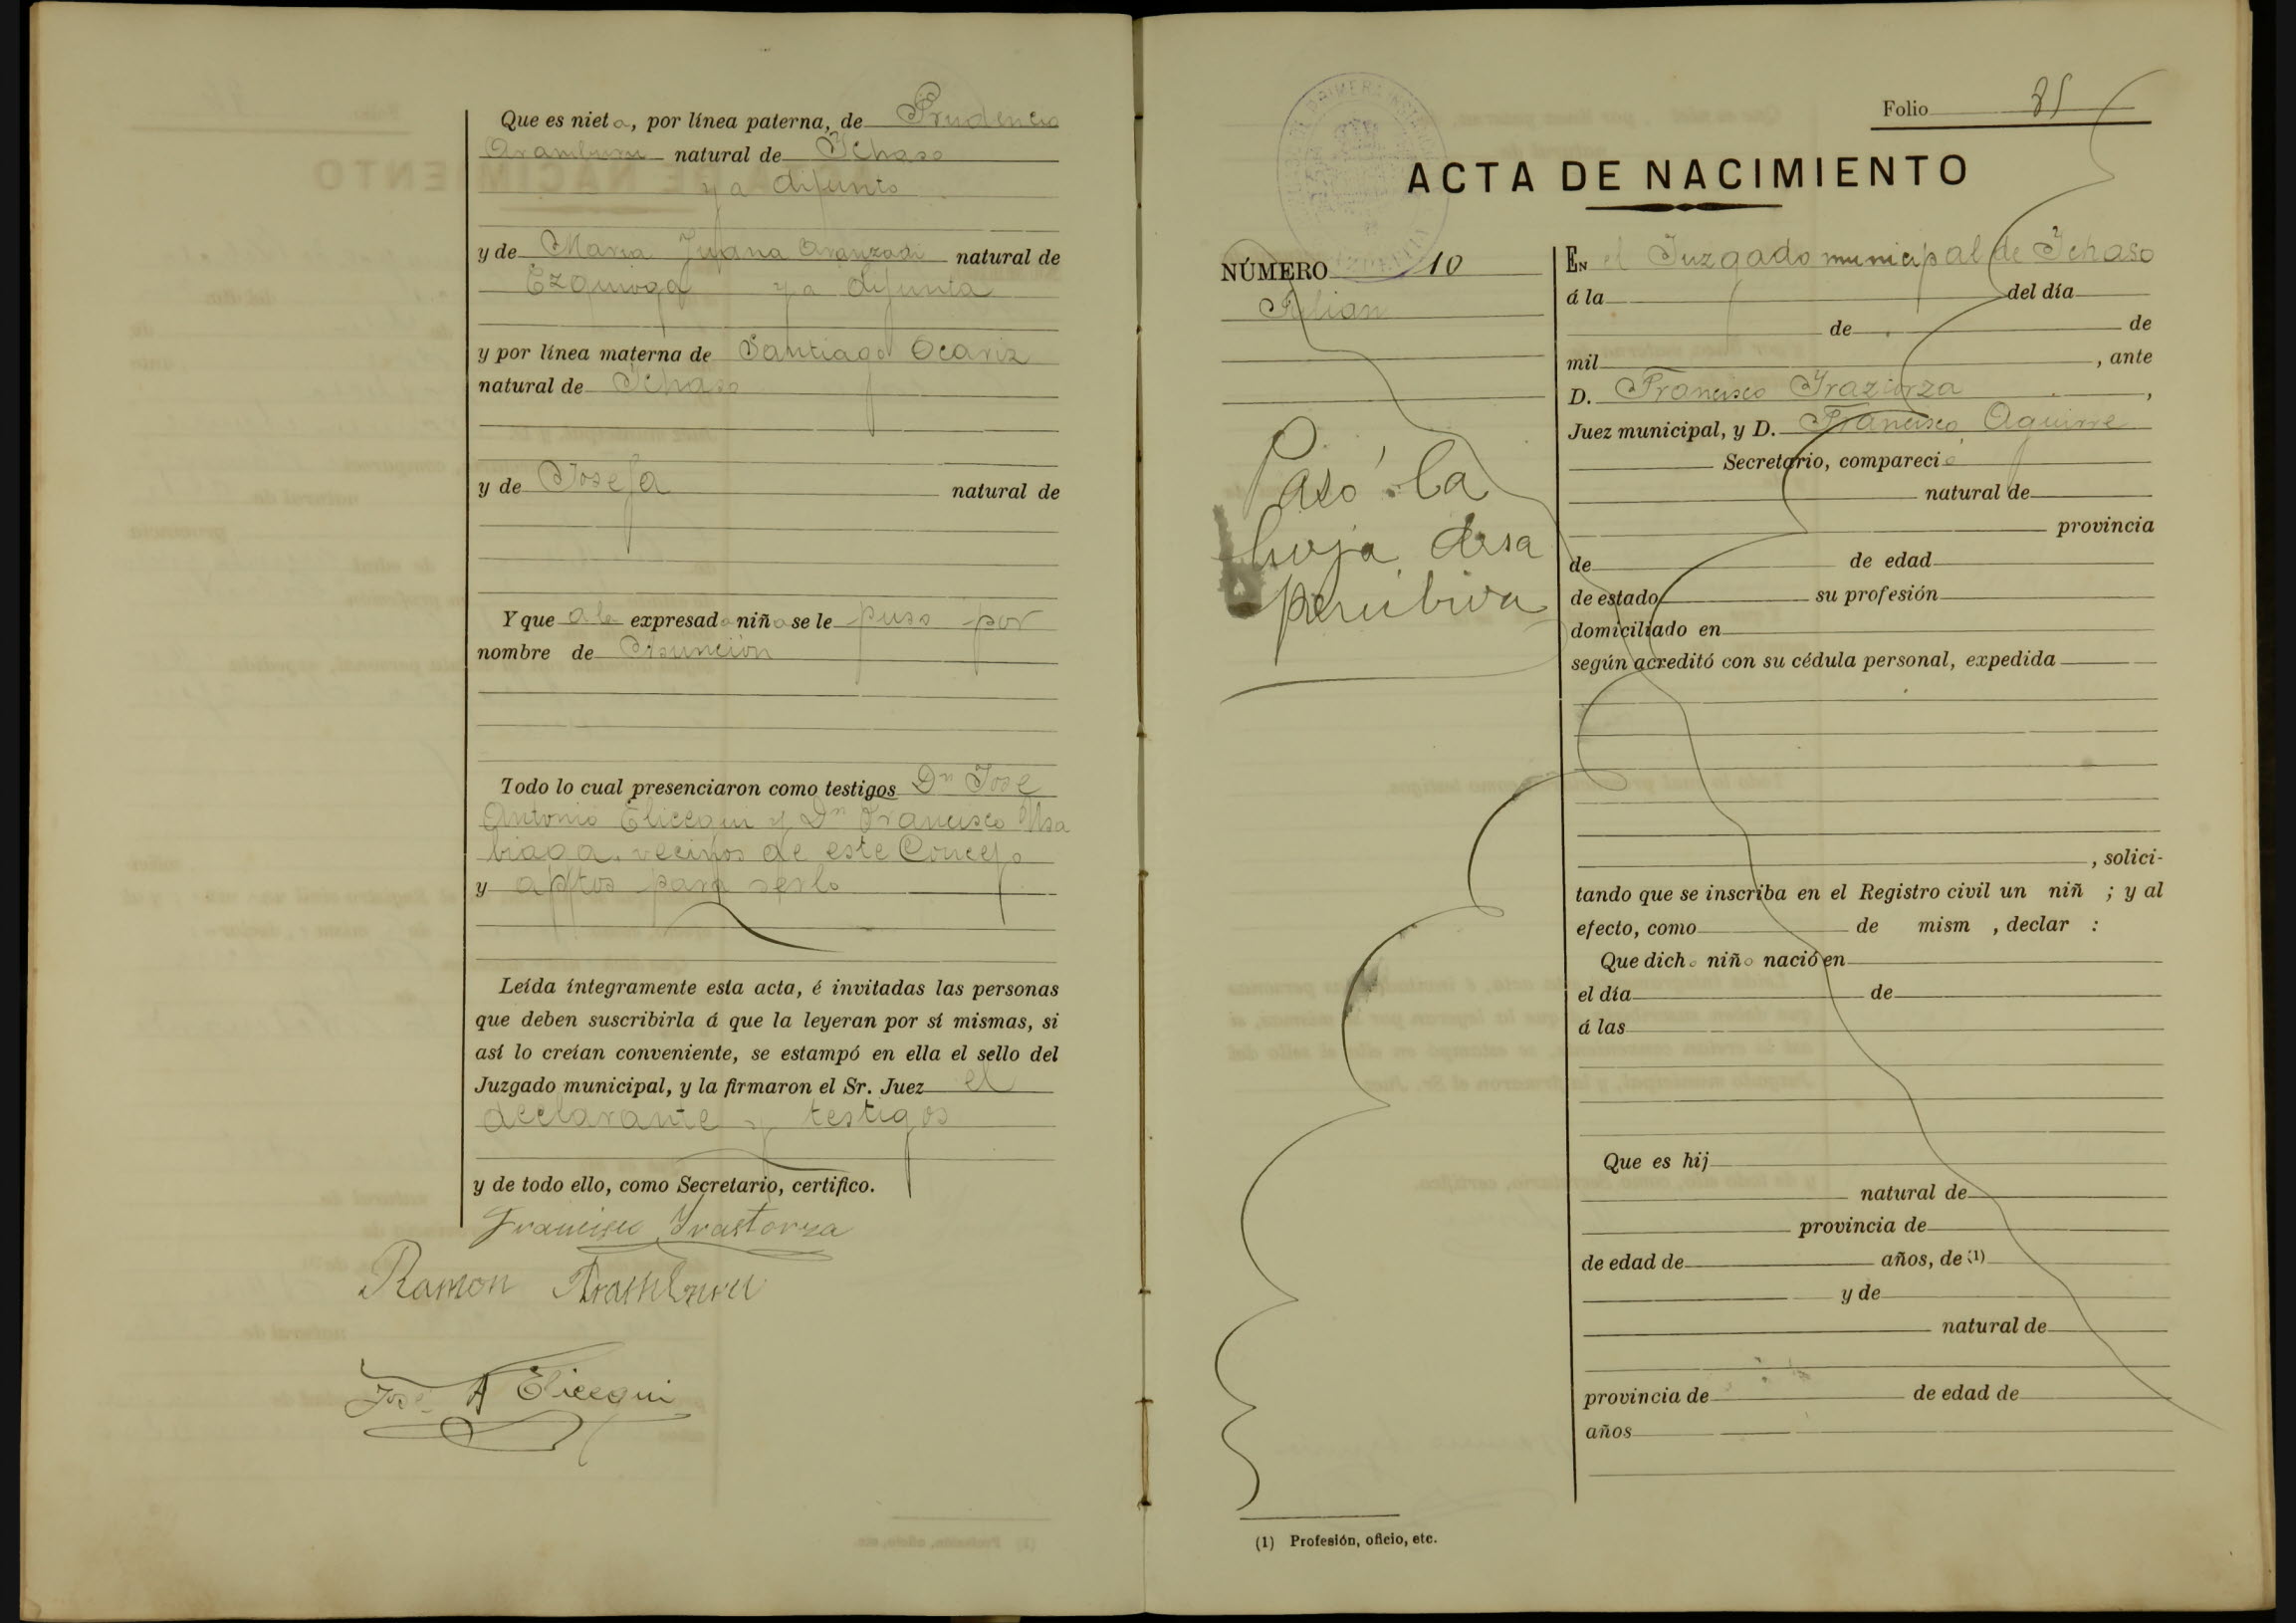 Que es nieta, por línea paterna, de Prudencio
Aramburu natural de Ichaso
ya difunto
y de Maria Juana Aranzadi natural de
Ezquioga ya difunta
y por línea materna de Santiago Ocariz
natural de Ichaso
y de Josefa natural de
Y que a la expresada niña se le puso por
nombre de Asunción
Todo lo cual presenciaron como testigos Dn Jose
Antonio Elicegui y Dn Francisco Usa
biaga, vecinos de este Concejo
y aptos para serlo
Leída íntegramente esta acta, é invitadas las personas
que deben suscribirla á que la leyeran por sí mismas, si
así lo creían conveniente, se estampó en ella el sello del
Juzgado municipal, y la firmaron el Sr. Juez el
declarante y testigos
y de todo ello, como Secretario, certifico.
Francisco Irastorza
Ramon Aramburu
José A Elicegui
Folio 85
ACTA DE NACIMIENTO
NÚMERO 10
Julian
Pasó la
hoja desa
percibiva
EN el Juzgado municipal de Ichaso
á la del día
de de
mil , ante
D. Francisco Iraztorza ,
Juez municipal, y D. Francisco Aguirre
Secretario, compareció
natural de
provincia
de de edad
de estado su profesión
domiciliado en
según acreditó con su cédula personal, expedida
, solici-
tando que se inscriba en el Registro civil un niñ ; y al
efecto, como de mism , declar :
Que dicho niño nació en
el día de
á las
Que es hij
natural de
provincia de
de edad de años, de (1)
y de
natural de
provincia de de edad de
años
(1) Profesión, oficio, etc.